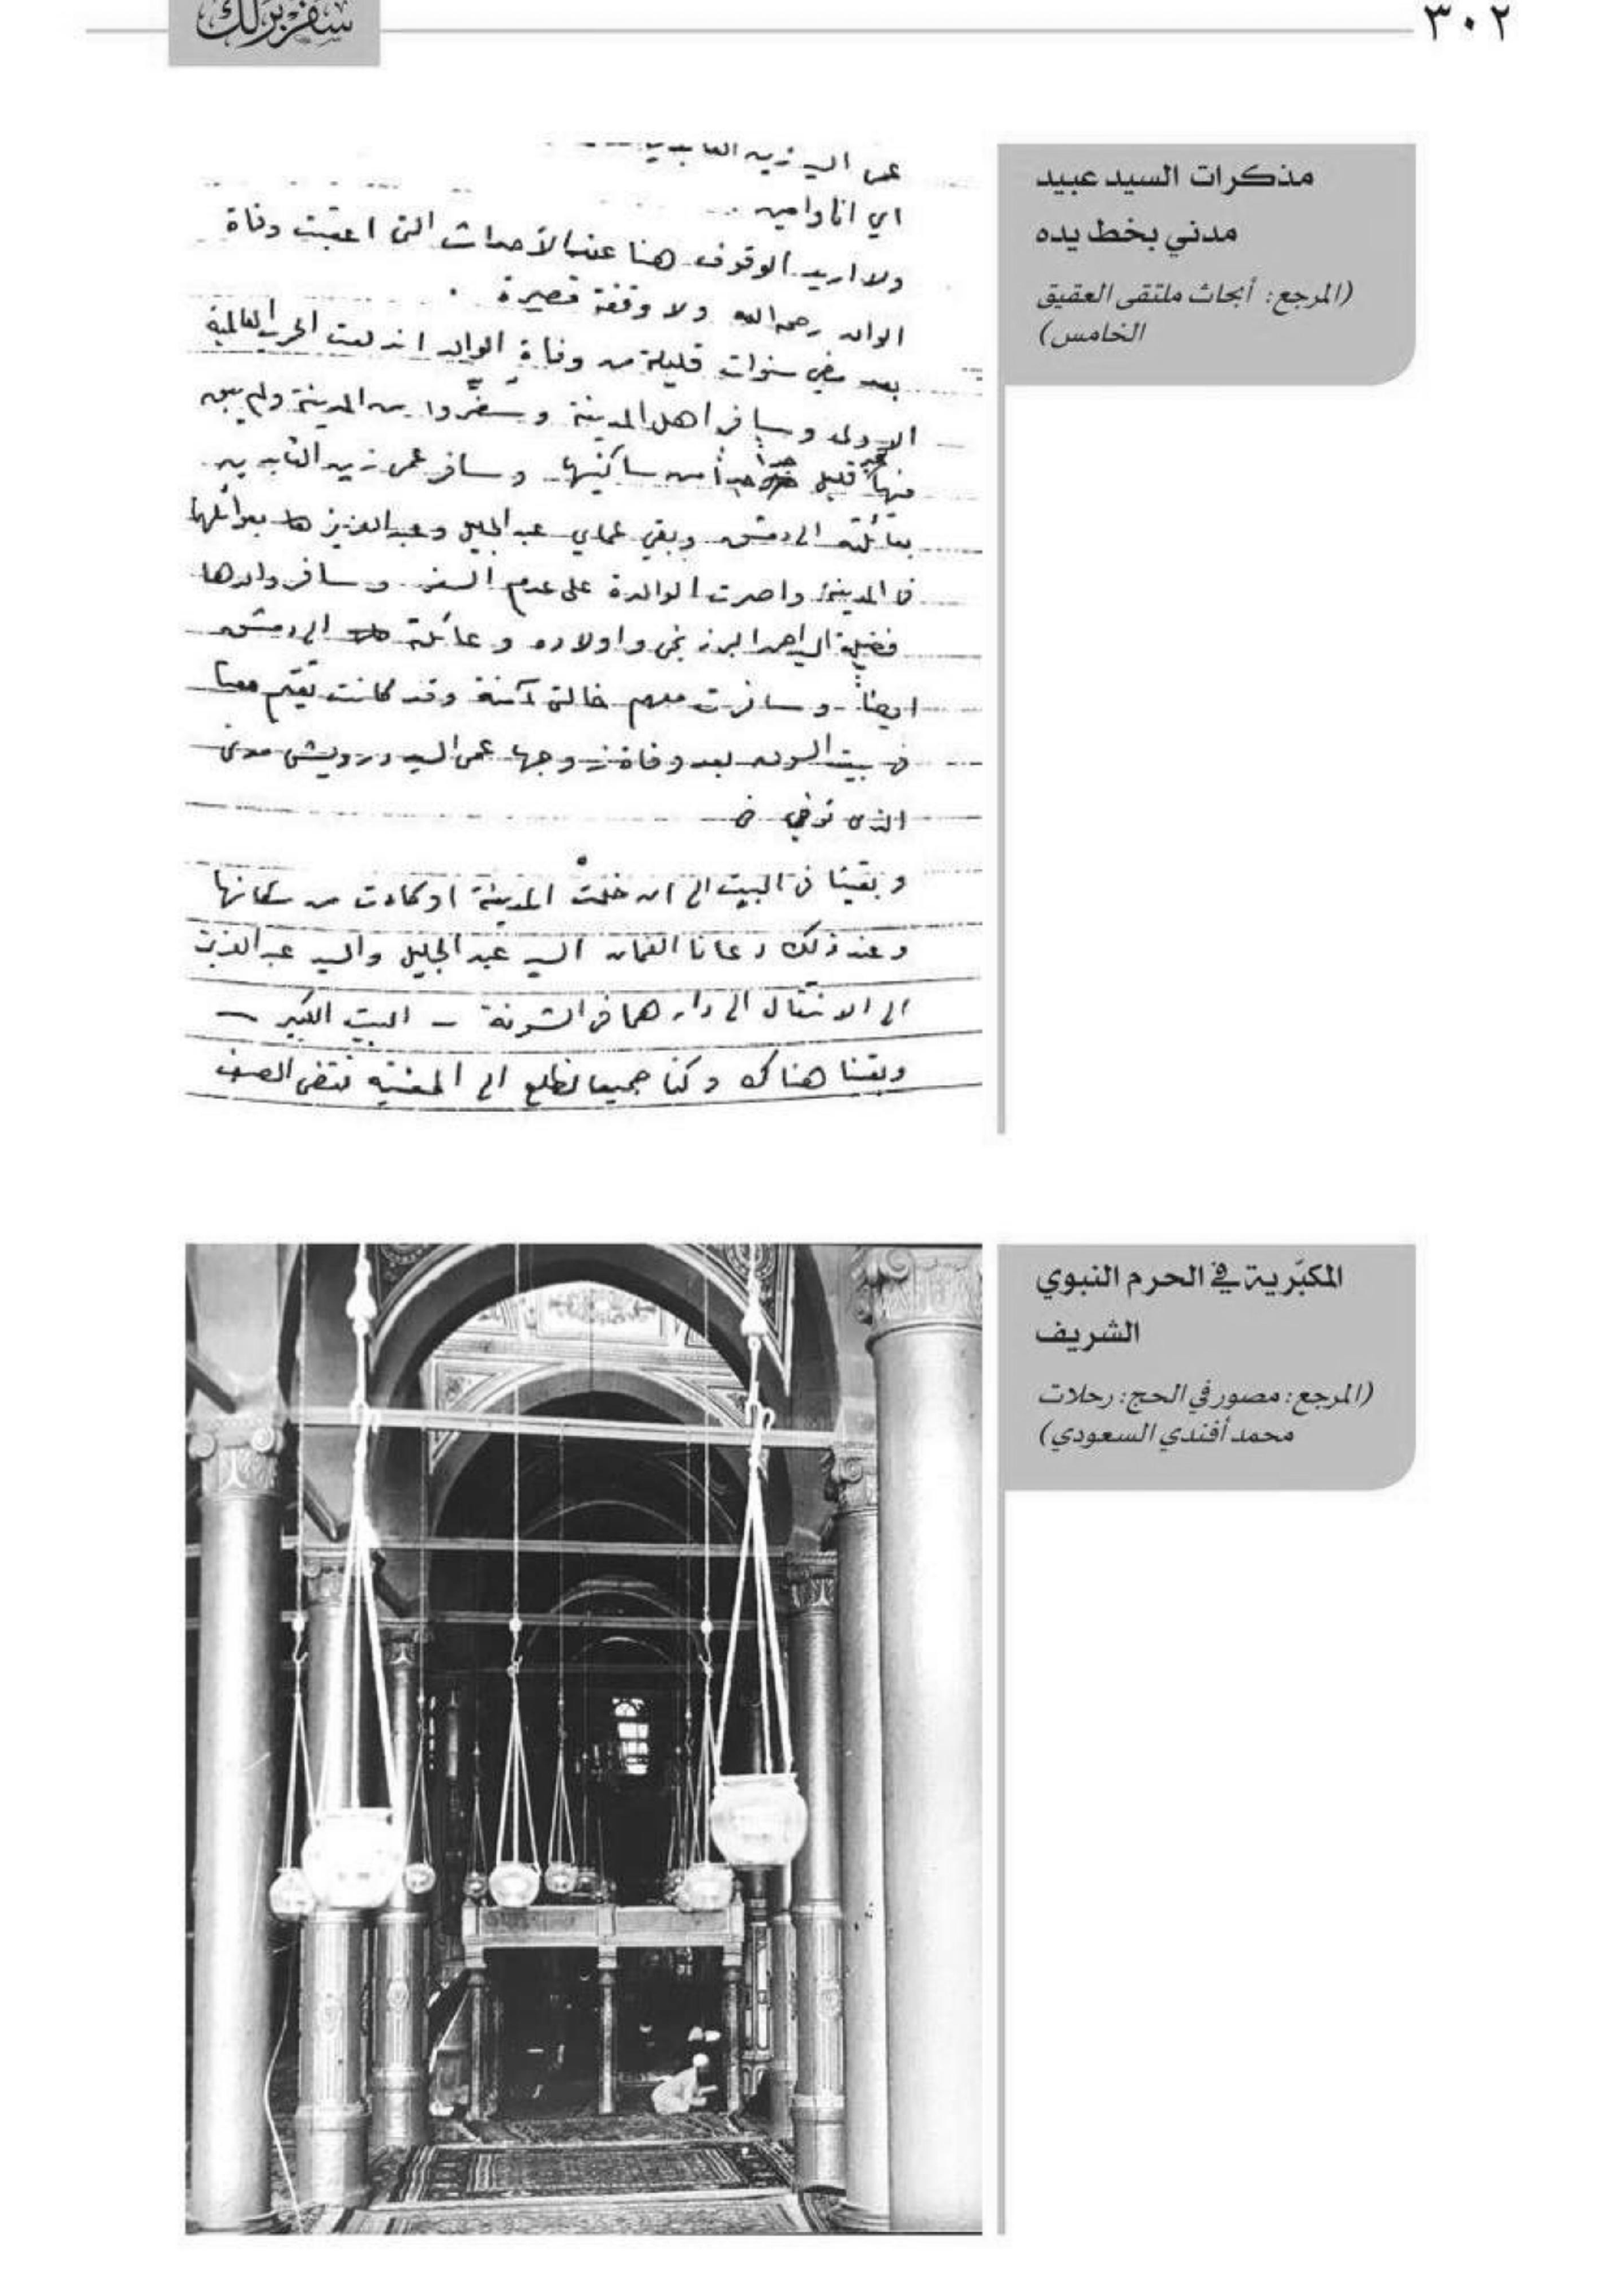 ٣٠٢
سفر برلك
مذكرات السيد عبيد
مدني بخط يده
(المرجع: أبحاث ملتقى العقيق
الخامس)
عمي السيد زين العابدين
اي انا وامين
ولا اريد الوقوف هنا عند الأحداث التي اعقبت وفاة
الوالد رحمه الله ولا وقفة قصيرة .
بعد مضي سنوات قليلة من وفاة الوالد اندلعت الحرب العالمية
الاولى وسافر اهل المدينة وسفّروا من المدينة ولم يبق
فيها غير قليل جداً من ساكنيها وسافر عمي زين العابدين
بعائلته الى دمشق وبقي عماي عبد الجليل وعبد العزيز هما بعوائلهما
في المدينة واصرت الوالدة على عدم السفر وسافر والدها
فضيلة السيد احمد البرزنجي واولاده وعائلته الى دمشق
ايضاً وسافرت معهم خالتي آمنة وقد كانت تقيم معنا
في بيت بعد وفاة زوجها عمي السيد درويش مدني
الذي توفي في
وبقينا في البيت الى ان خلت المدينة او كادت من سكانها
وعند ذلك دعانا العمان السيد عبد الجليل والسيد عبد العزيز
الى الانتقال الى دارهما في الشونة - البيت الكبير -
وبقينا هناك وكنا جميعا نطلع الى نقضي الصيف
المكبّرية في الحرم النبوي
الشريف
(المرجع: مصور في الحج: رحلات
محمد أفندي السعودي)